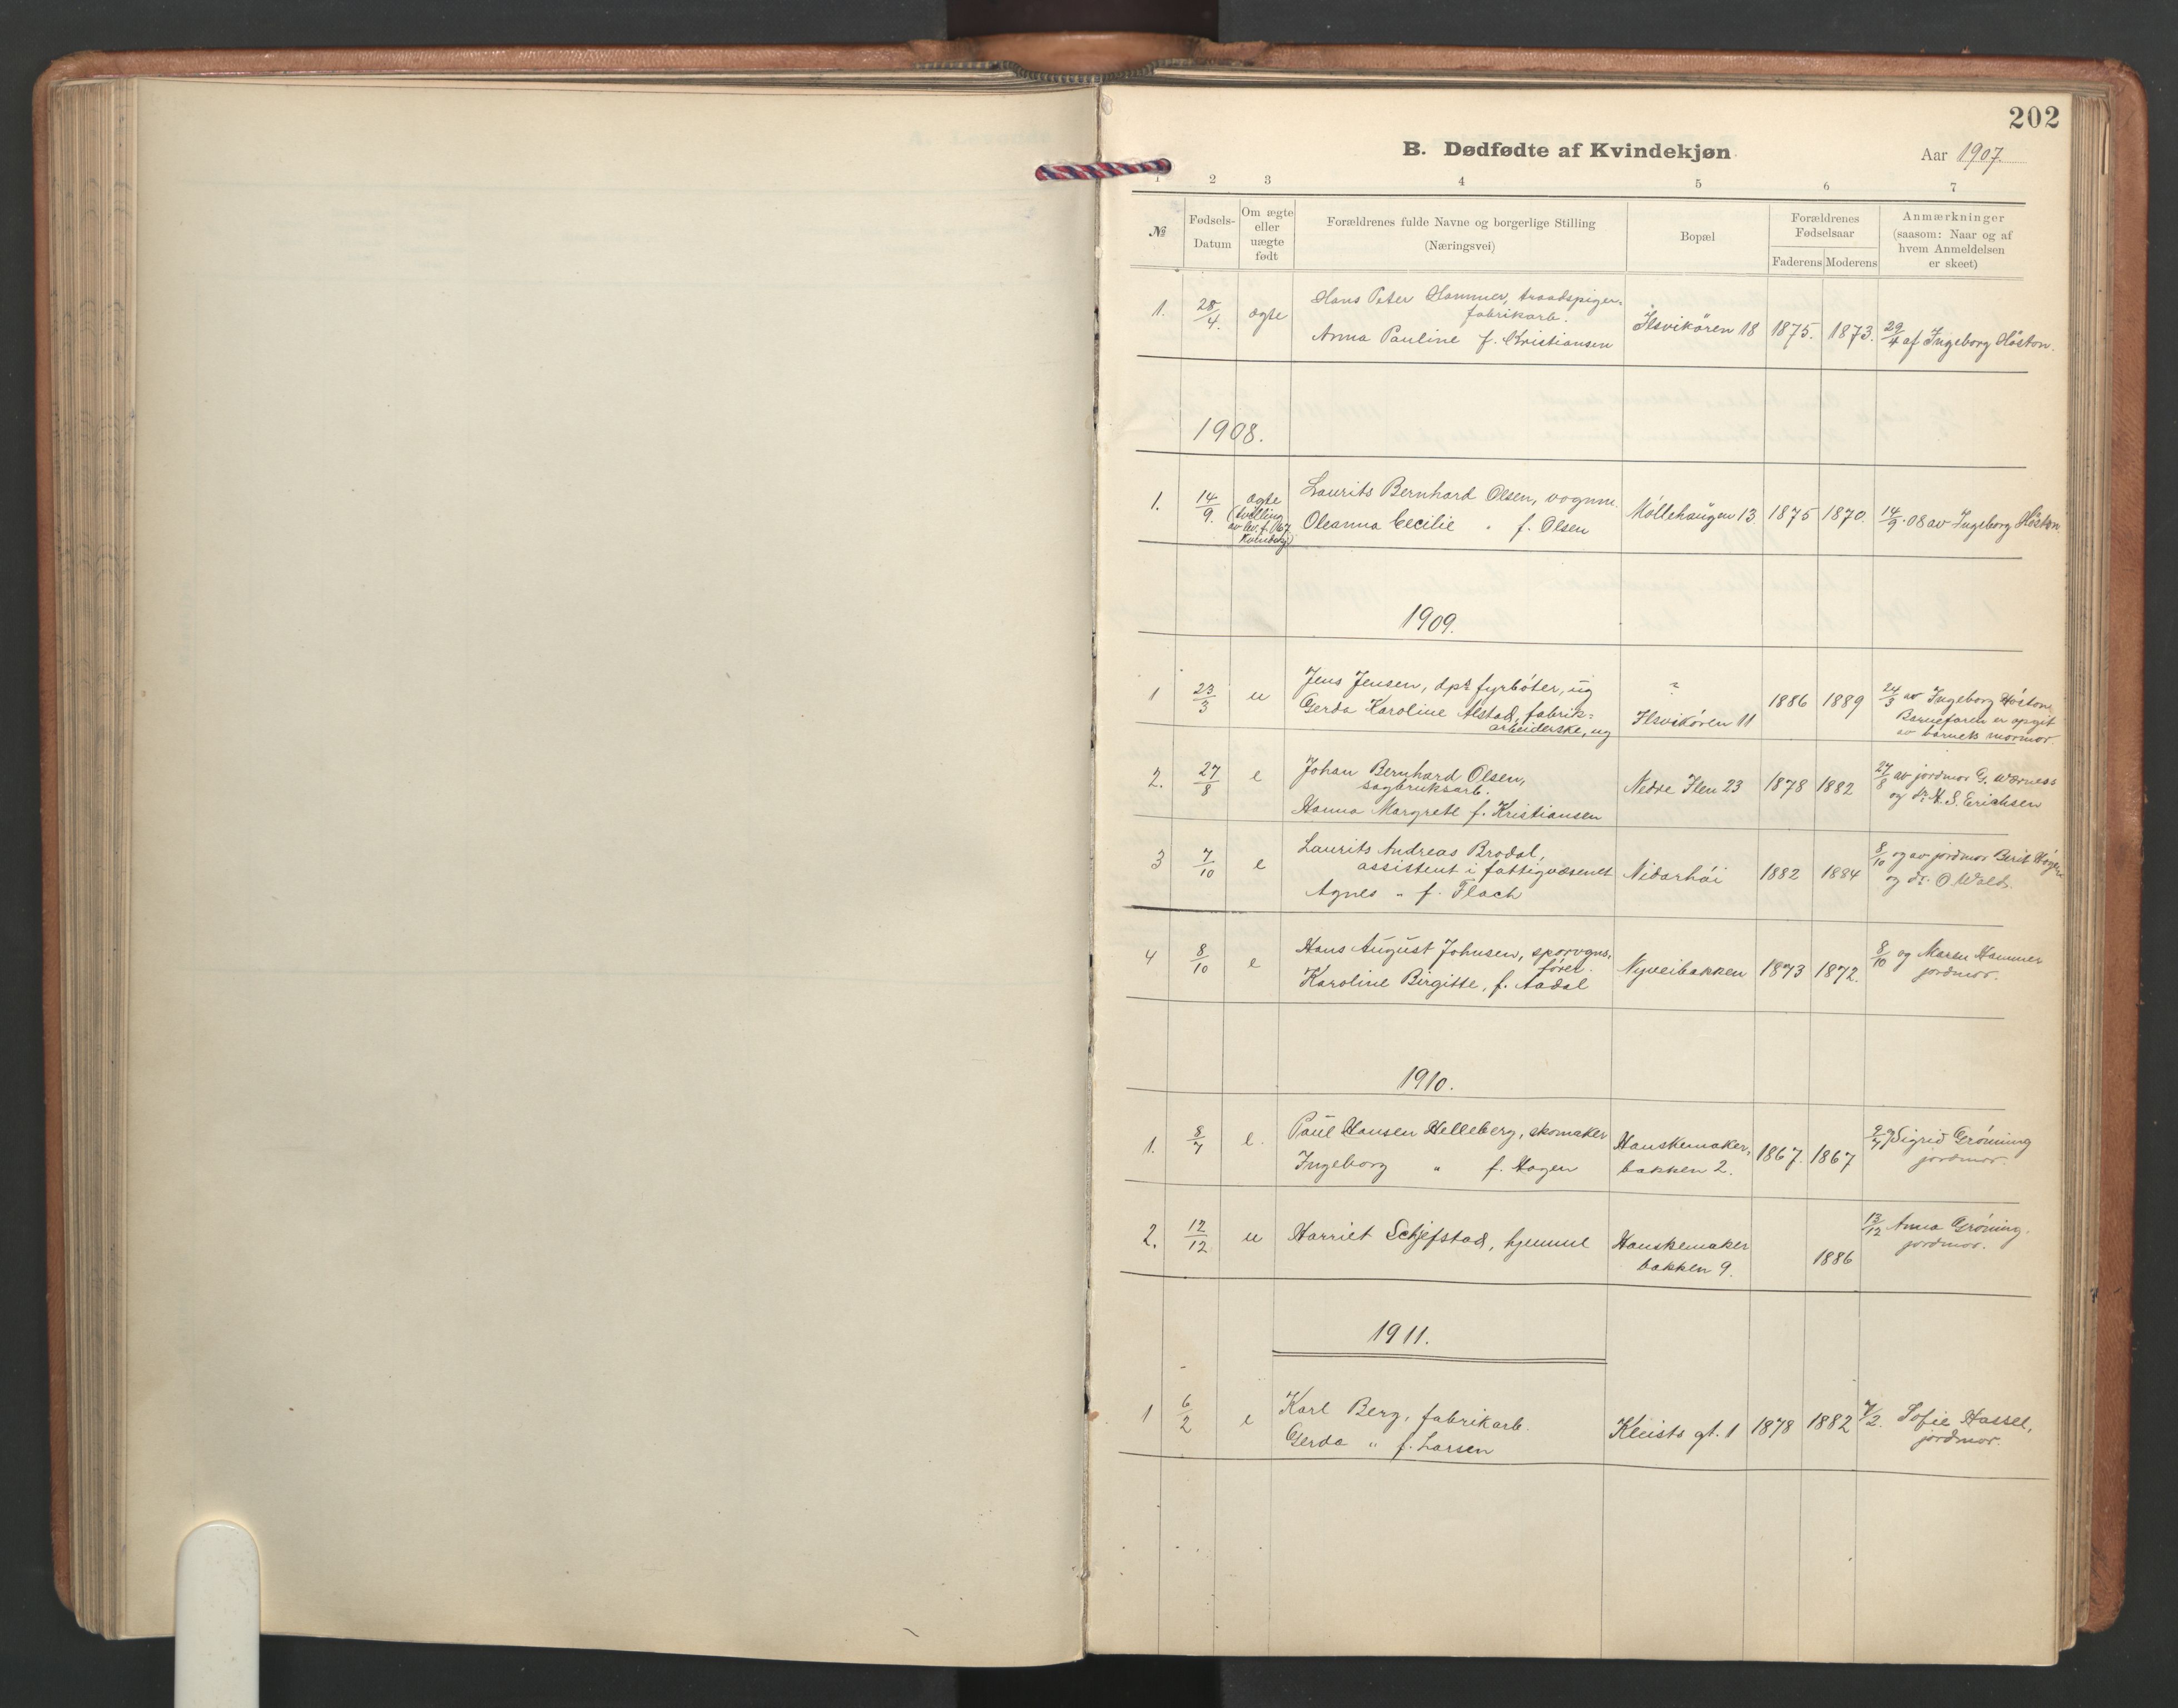 202
B. Dødfødte af Kvindekjøn
Aar 1907.
1 2 3 4 5 6 7
№
Fødsels-
Datum
Om ægte
eller
uægte
født
Forældrenes fulde Navne og borgerlige Stilling
(Næringsvei)
Bopæl
Forældrenes
Fødselsaar
Faderens Moderens
Anmærkninger
(saasom: Naar og af
hvem Anmeldelsen
er skeet)
1. 28/4. ægte
Hans Peter Hammer, traadspiger-
fabrikarb.
Anna Pauline f. Kristiansen
Ilsvikøren 18 1875. 1873. 29/4 af Ingeborg Høston.
1908.
1. 14/9. ægte
(tvilling
av lev. f. 167
Kvindekj)
Laurits Bernhard Olsen, vognm.
Oleanna Cecilie " f. Olsen
Møllehaugen 13 1875 1870. 14/9-08 av Ingeborg Høston.
1909.
1 23/3 u
Jens Jensen, dpsk fyrbøter, ug
Gerda Karoline Alstad, fabrik-
arbeiderske, ug
?
Ilsvikøren 11
1886 1889
24/3 av Ingeborg Høston.
Barnefaren er opgit
av barnets mormor.
2. 27/8 e
Johan Bernhard Olsen,
sagbruksarb.
Hanna Margrete f. Kristiansen
Nedre Ilen 23 1878 1882
27/8 av jordmor G. Werness
og dr. H. S. Erichsen
3 7/10 e
Laurits Andreas Brodal,
assistent i fattigvæsenet
Agnes " f. Flach
Nidarhøi 1882 1884
8/10 og av jordmor Berit
og dr. O. Wald.
4 8/10 e
Hans August Johnsen, sporvogns-
fører.
Karoline Birgitte, f. Aadal
Nyveibakken 1873 1872.
8/10 og Maren Hammer
jordmor.
1910.
1. 8/7 e.
Paul Hansen Helleberg, skomaker
Ingeborg " f. Hagen
Hanskemaker-
bakken 2.
1867. 1867
9/7 Sigrid Grønning
jordmor.
2. 12/12 u
Harriet Schjefstad, hjemme
Hanskemaker
bakken 9.
1886
13/12 Anna Grøning.
jordmor.
1911.
1 6/2 e
Karl Berg, fabrikarb.
Gerda " f. Larsen
Kleists gt. 1 1878 1882
7/2. Sofie Hassel,
jordmor.